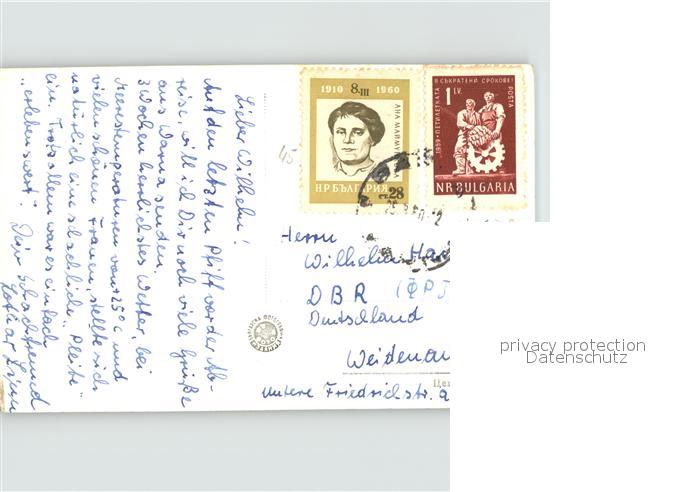 Lieber Wilhelm!
Auf den letzten Pfiff vor der Ab-
reise, will ich Dir noch viele Grüße
aus Warna senden.
3 Wochen herrlichstes Wetter, bei
Meerestemperaturen von +25°C und
vielen schönen Frauen, stellte sich
natürlich eine schachliche "Pleite"
ein. Trotz allem war es einfach
"erlebenswert". Dein Schachfreund
Lothar
45
1910 8.III 1960
АНА МАЙМУНКОВА
НР БЪЛГАРИЯ
СТ. 28
В СЪКРАТЕНИ СРОКОВЕ!
1 LV.
POSTA
1959 • ПЕТИЛЕТКАТА
N R BULGARIA
Herrn
Wilhelm
DBR (ФРГ)
Deutschland
Weidenau
untere Friedrichstr.
privacy protection
Datenschutz